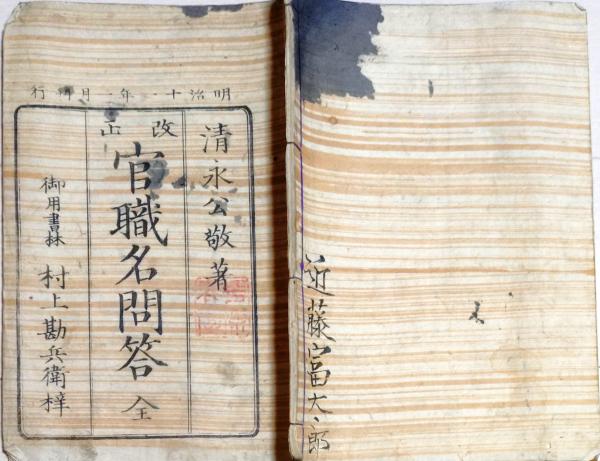 明治十一年一月刻行
改正
清永公敬著
官職名問答 全
御用書林 村上勘兵衛梓
近藤富太郎